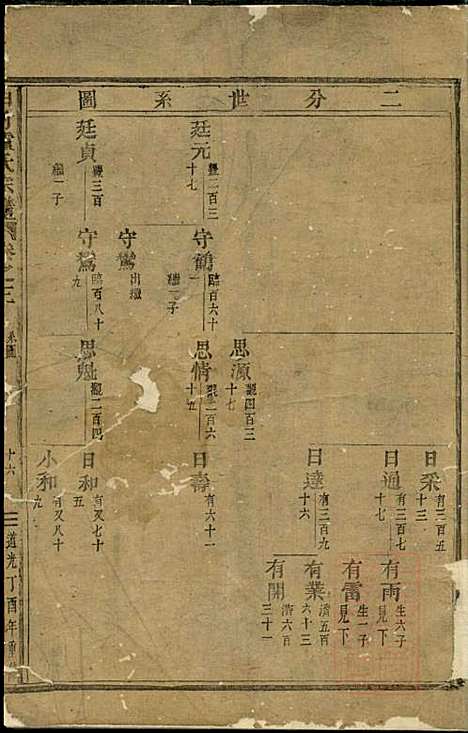 二分世系圖
廷元
豐二百三
十七
廷貞
豐三百
繼一子
守鶴
臨百六十
一
繼一子
守鸞
出繼
守鴛
臨百八十
九
思源
觀四百三
十七
思情
觀二百六
十五
思魁
觀二百四
日采
有三百五
十三
日通
有三百七
十七
日達
有三百九
十六
日壽
有六十一
日和
有又七十
五
小和
有又八十
九
有雨
生六子
見下
有雷
生一子
見下
有業
濟五百
六十三
有開
濟六百
三十一
氏宗譜
卷之
系圖
十六
道光丁酉年重